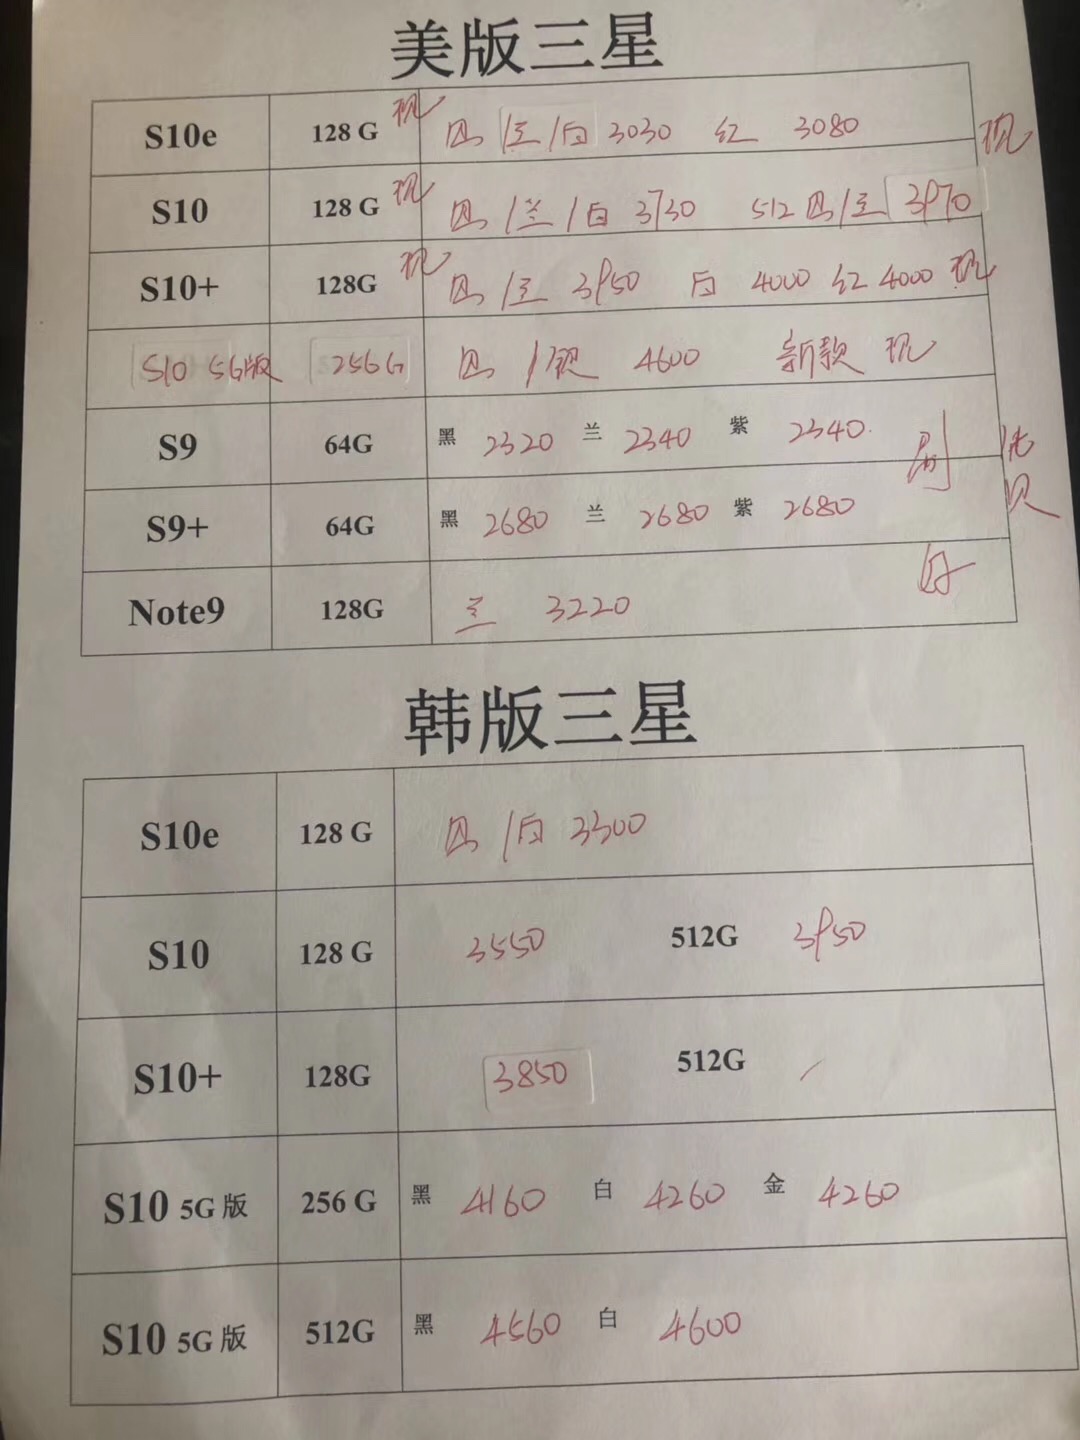 美版三星
S10e 128 G 现 黑/兰/白 3030 红 3080 现
S10 128 G 现 黑/兰/白 3730 512 黑/兰 3970
S10+ 128G 现 黑/兰 3950 白 4000 红 4000 现
S10 5G版 256G 黑/银 4600 新款 现
S9 64G 黑 2320 兰 2340 紫 2340
S9+ 64G 黑 2680 兰 2680 紫 2680
Note9 128G 兰 3220
韩版三星
S10e 128 G 黑/白 3300
S10 128 G 3550 512G 3950
S10+ 128G 3850 512G /
S10 5G版 256 G 黑 4160 白 4260 金 4260
S10 5G版 512G 黑 4560 白 4600